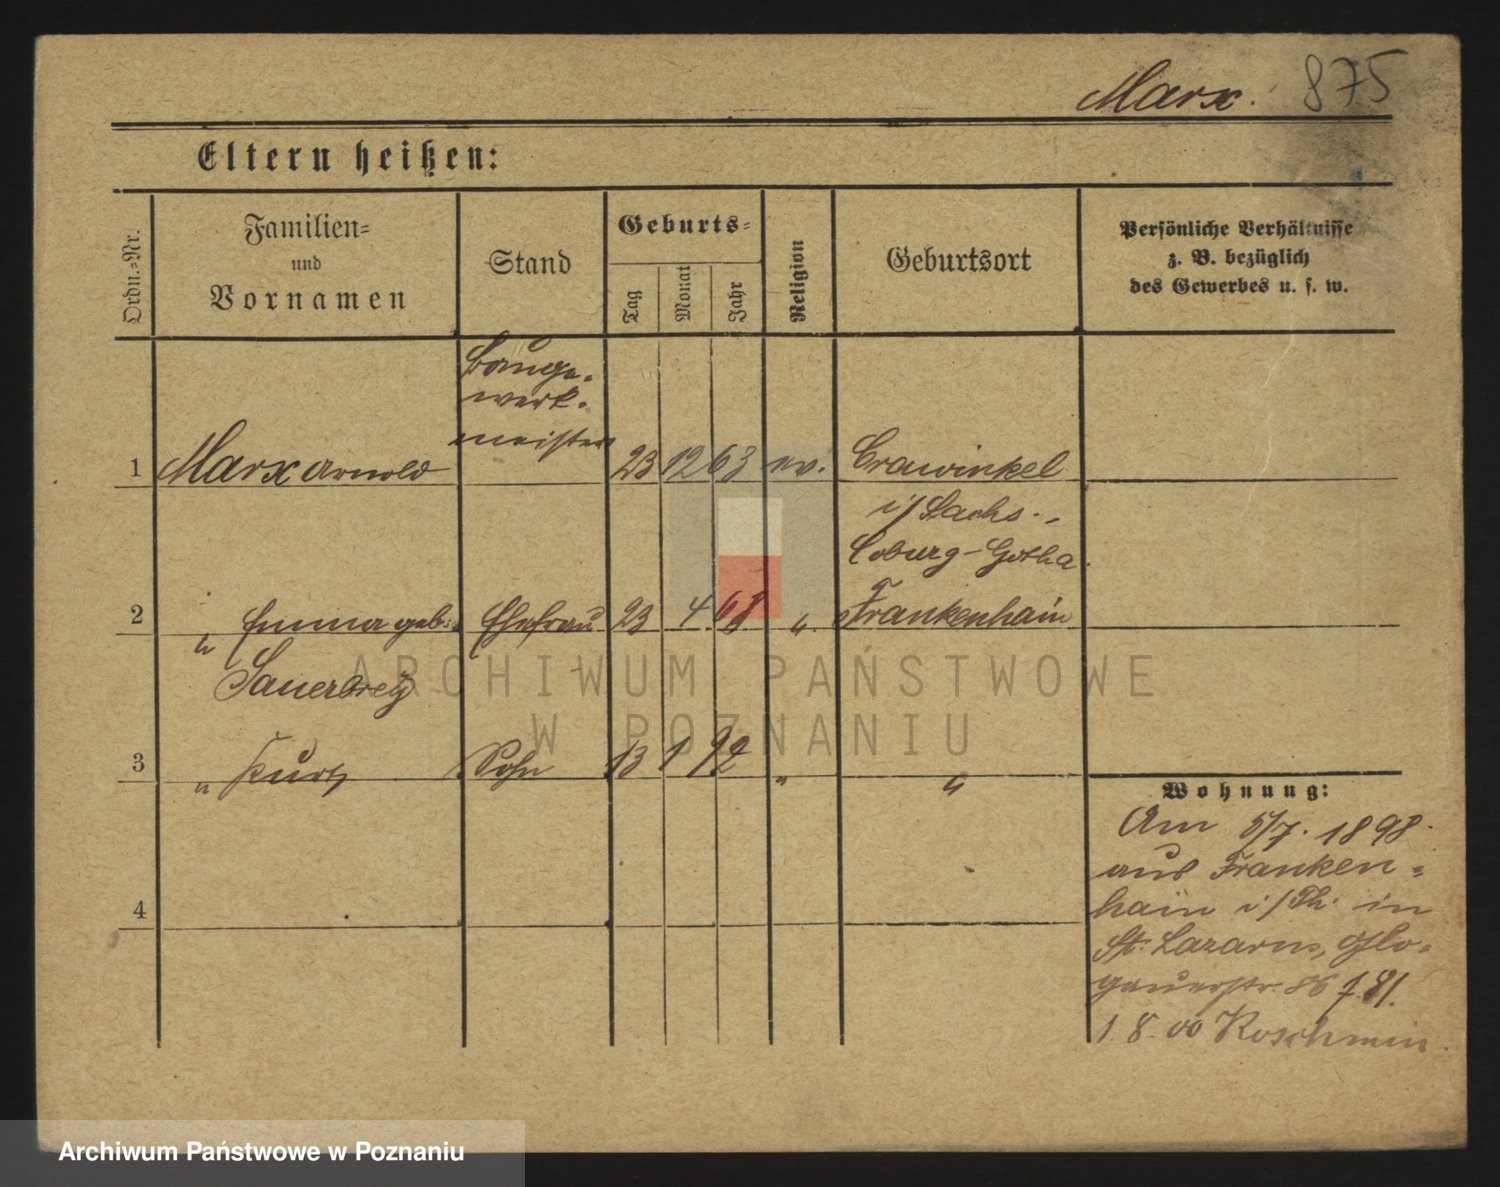 Marx. 875
Eltern heißen:
Ordn.-Nr.
Familien-
und
Vornamen
Stand
Geburts-
Tag
Monat
Jahr
Religion
Geburtsort
Persönliche Verhältnisse
z. B. bezüglich
des Gewerbes u. s. w.
Bauge-
werk-
meister
1 Marx Arnold 23 12 63 ev. Crawinkel
i/Sachs.-
Coburg-Gotha.
2 " Emma geb: Ehefrau 23 4 68 " Frankenhain
Sauerbrey
3 " Kurt Sohn 13 1 92 " "
4
Wohnung:
Am 5/7. 1898.
aus Franken-
hain i/Th. in
St. Lazarus, Glo-
gauerstr. 86
1. 8. 00 Koschmin.
ARCHIWUM PAŃSTWOWE
W POZNANIU
Archiwum Państwowe w Poznaniu